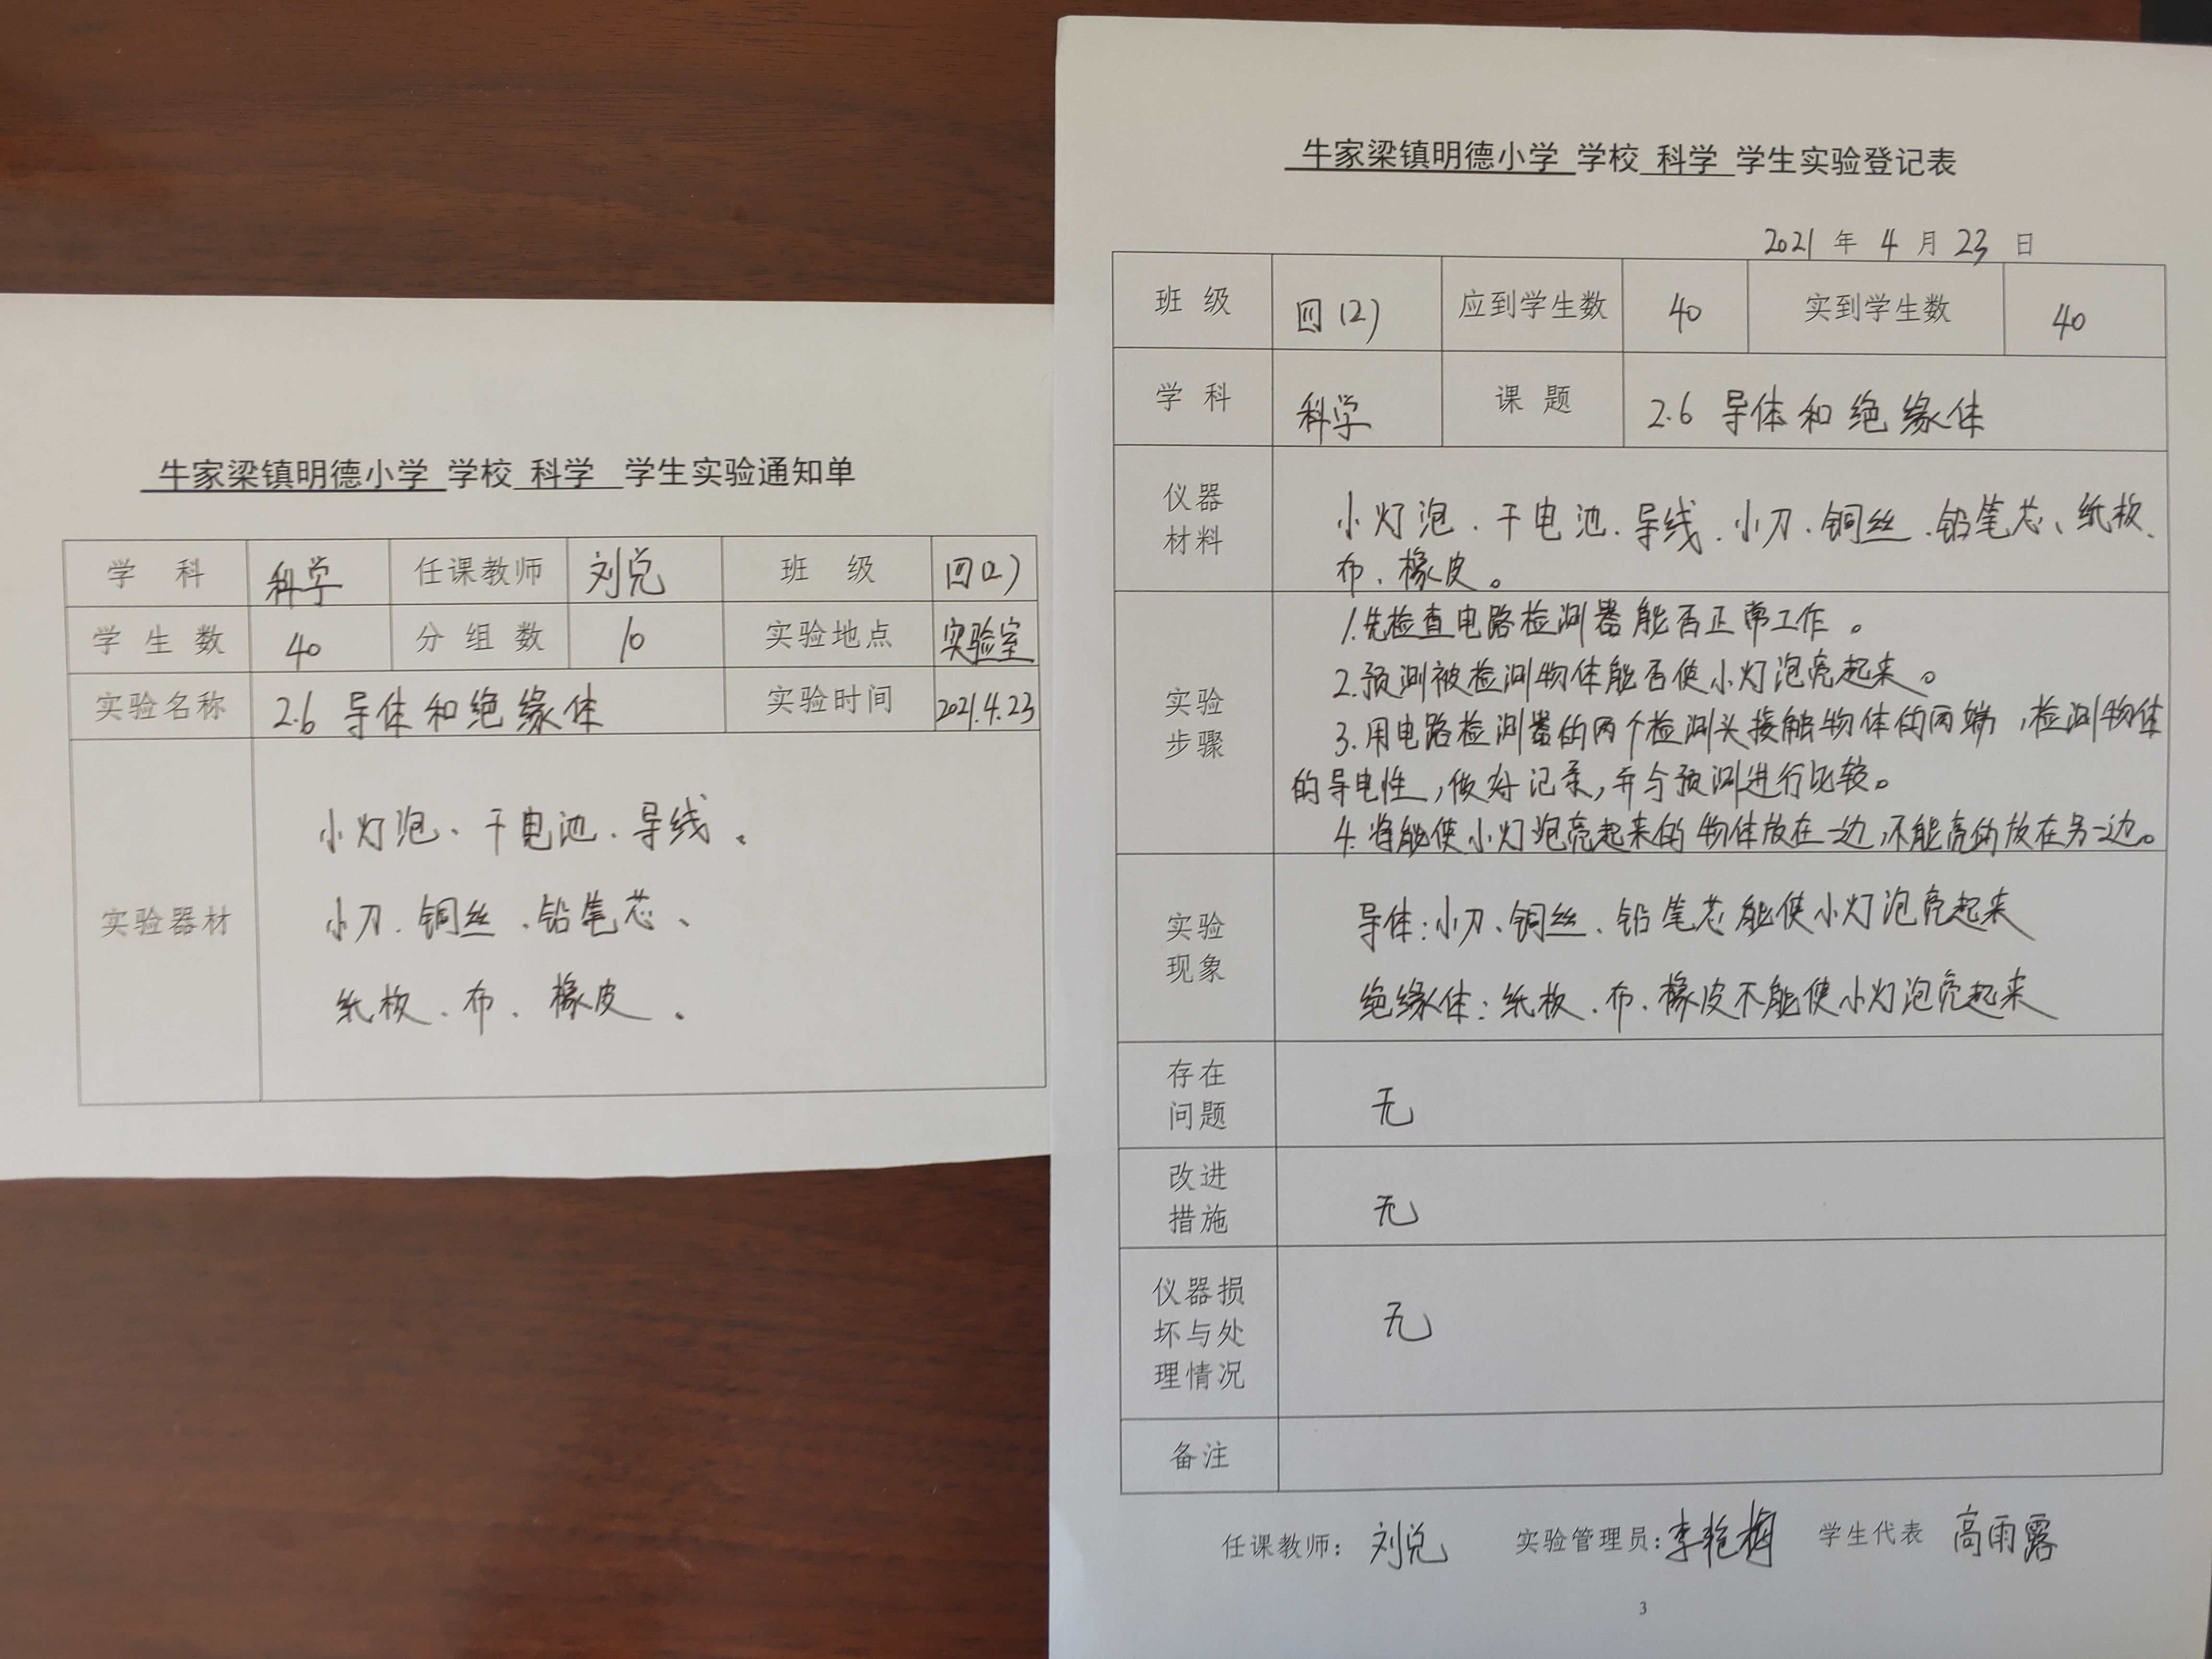 牛家梁镇明德小学 学校 科学 学生实验通知单
学 科 科学 任课教师 刘兑 班 级 四(2)
学 生 数 40 分 组 数 10 实验地点 实验室
实验名称 2.6 导体和绝缘体 实验时间 2021.4.23
实验器材
小灯泡、干电池、导线、
小刀、铜丝、铅笔芯、
纸板、布、橡皮。
牛家梁镇明德小学 学校 科学 学生实验登记表
2021 年 4 月 23 日
班 级 四(2) 应到学生数 40 实到学生数 40
学 科 科学 课 题 2.6 导体和绝缘体
仪器
材料
小灯泡、干电池、导线、小刀、铜丝、铅笔芯、纸板、
布、橡皮。
实验
步骤
1.先检查电路检测器能否正常工作。
2.预测被检测物体能否使小灯泡亮起来。
3.用电路检测器的两个检测头接触物体的两端,检测物体
的导电性,做好记录,并与预测进行比较。
4.将能使小灯泡亮起来的物体放在一边,不能亮的放在另一边。
实验
现象
导体:小刀、铜丝、铅笔芯能使小灯泡亮起来
绝缘体:纸板、布、橡皮不能使小灯泡亮起来
存在
问题
无
改进
措施
无
仪器损
坏与处
理情况
无
备注
任课教师: 刘兑 实验管理员:李艳梅 学生代表 高雨露
3